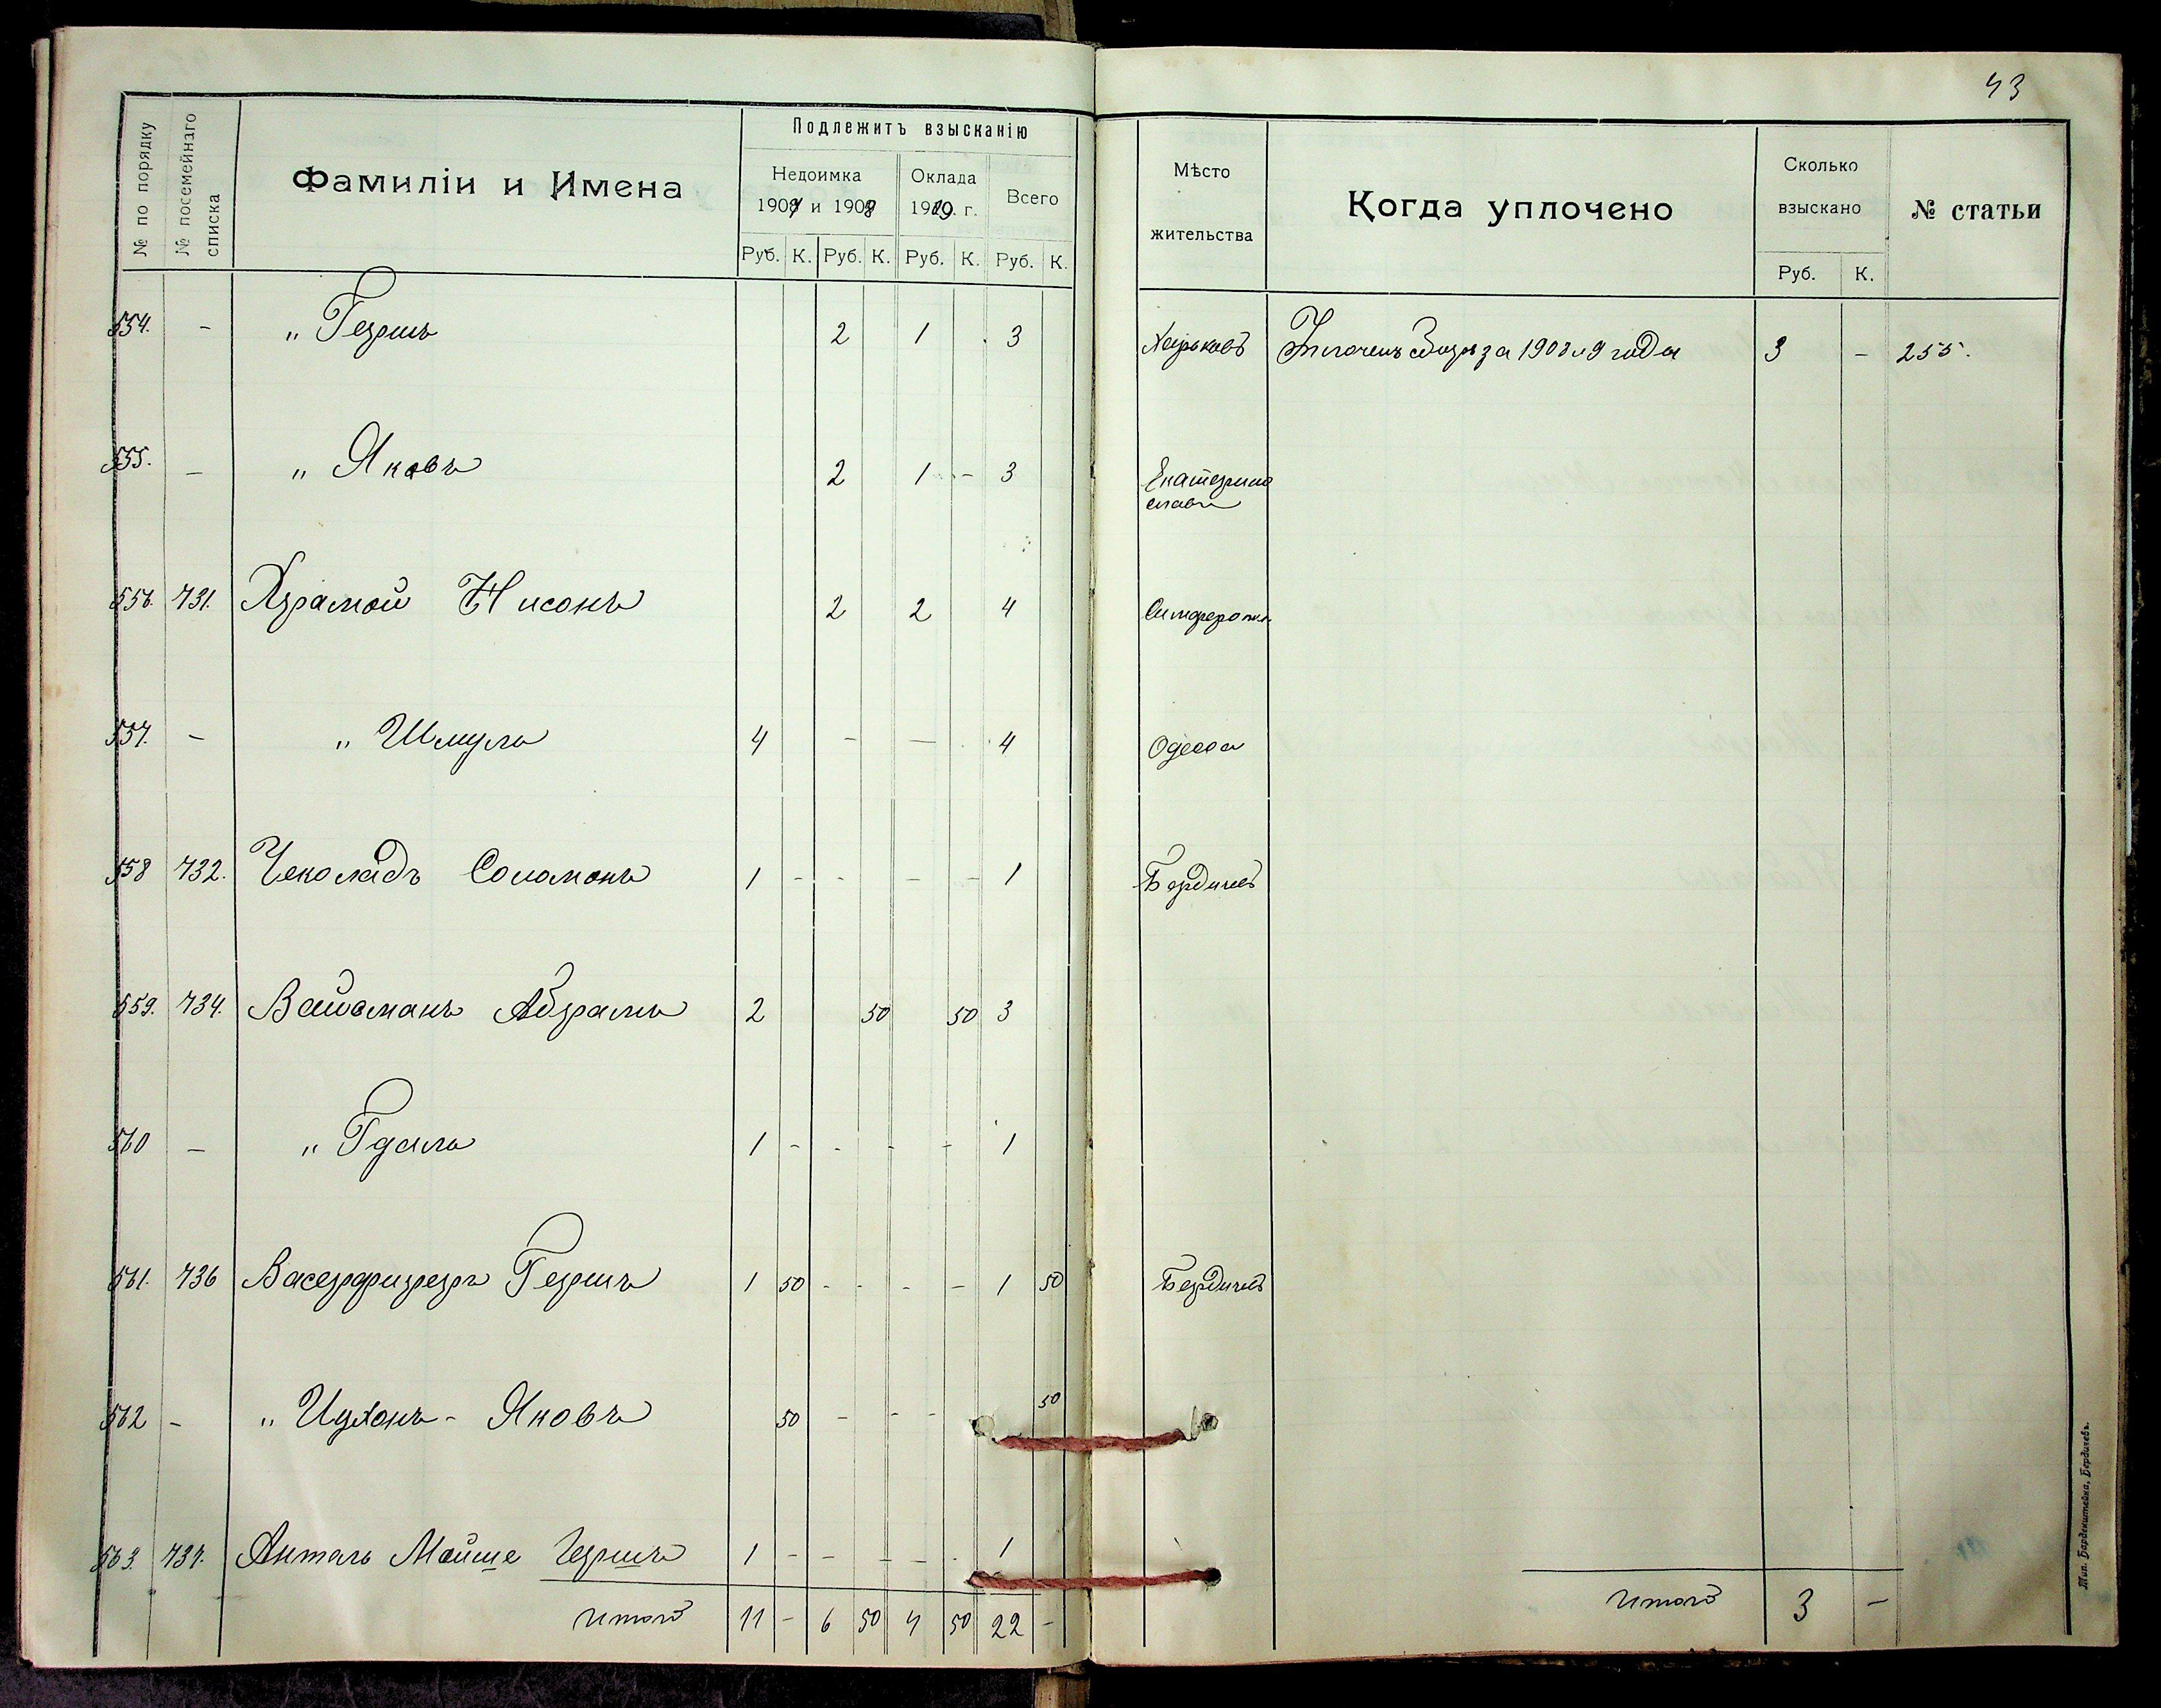 43
№ по порядку
№ посемейнаго списка
Фамиліи и Имена
Подлежитъ взысканію
Недоимка
1907 и 1908
Оклада
1909 г.
Всего
Руб. К. Руб. К. Руб. К. Руб. К.
Мѣсто
жительства
Когда уплочено
Сколько
взыскано
Руб. К.
№ статьи
554. - " Гершъ 2 1 3 Харьковъ за 1908 и 9 годы 3 - 255.
555. - " Яковъ 2 1 - 3 Екатерино
славъ
556. 731. Храмой Нисонъ 2 2 4 Симферопол
557. - " Шмуль 4 - - 4 Одесса
558 732. Чеколадъ Соломонъ 1 - - - - 1 Бердичевъ
559. 734. Вайсманъ Абрамъ 2 50 50 3
560 - " Гдаль 1 - - - - 1
561. 736 Васерфиреръ Гершъ 1 50 - - - - 1 50 Бердичевъ
562 - " Цухонъ - Яковъ 50 - - - 50
563. 737. Анталь Мойше Гершъ 1 - - - - 1
Итого 11 - 6 50 4 50 22 -
Итого 3 -
Тип. Барденштейна, Бердичевъ.